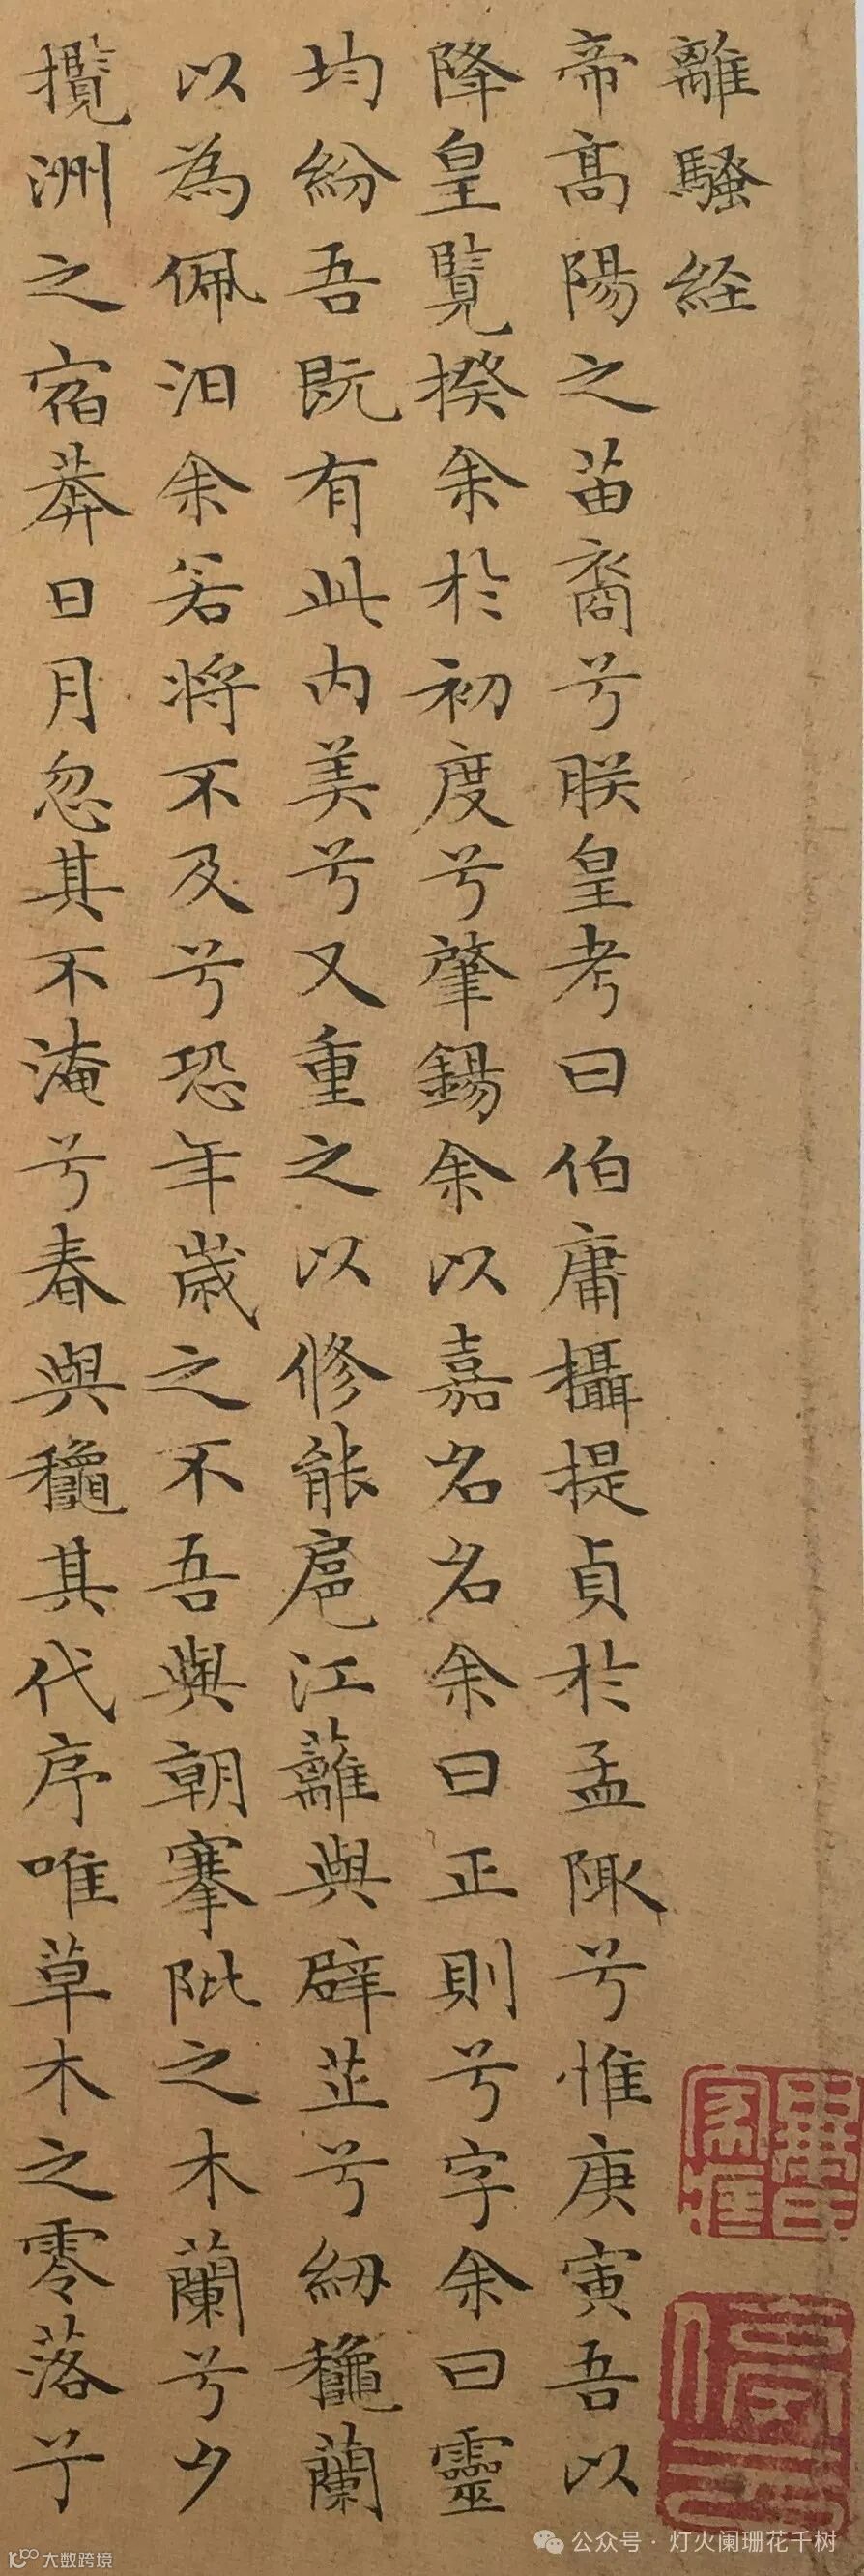 離騷経
帝髙陽之苗裔兮朕皇考曰伯庸攝提貞於孟陬兮惟庚寅吾以
降皇覽揆余於初度兮肇錫余以嘉名名余曰正則兮字余曰靈
均紛吾既有此内美兮又重之以脩能扈江蘺與辟芷兮紉穐蘭
以為佩汨余若将不及兮恐年歲之不吾與朝搴阰之木蘭兮夕
攬洲之宿莽日月忽其不淹兮春與穐其代序唯草木之零落兮
公众号 · 灯火阑珊花千树
大数跨境